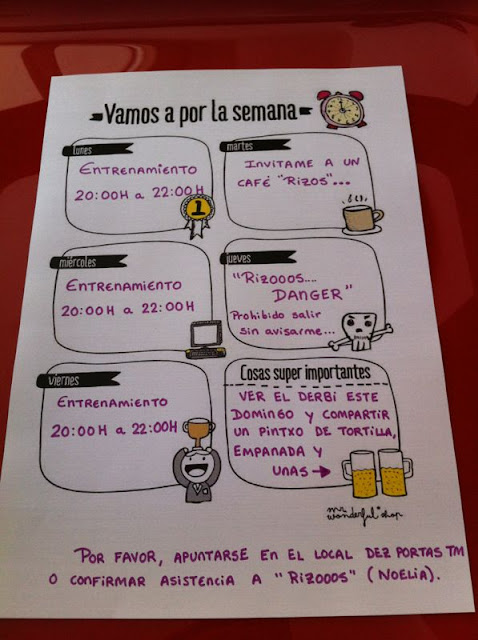 Vamos a por la semana
lunes
ENTRENAMIENTO
20:00H a 22:00H
1
martes
INVITAME A UN
CAFÉ "RIZOS"...
miércoles
ENTRENAMIENTO
20:00H a 22:00H
jueves
"RIZOOOS....
DANGER"
Prohibido salir
sin avisarme...
viernes
ENTRENAMIENTO
20:00H a 22:00H
Cosas super importantes
VER EL DERBI ESTE
DOMINGO Y COMPARTIR
UN PINTXO DE TORTILLA,
EMPANADA Y
UNAS →
mr.
wonderful shop
POR FAVOR, APUNTARSE EN EL LOCAL DEZ PORTAS TM
O CONFIRMAR ASISTENCIA A "RIZOOOS" (NOELIA).